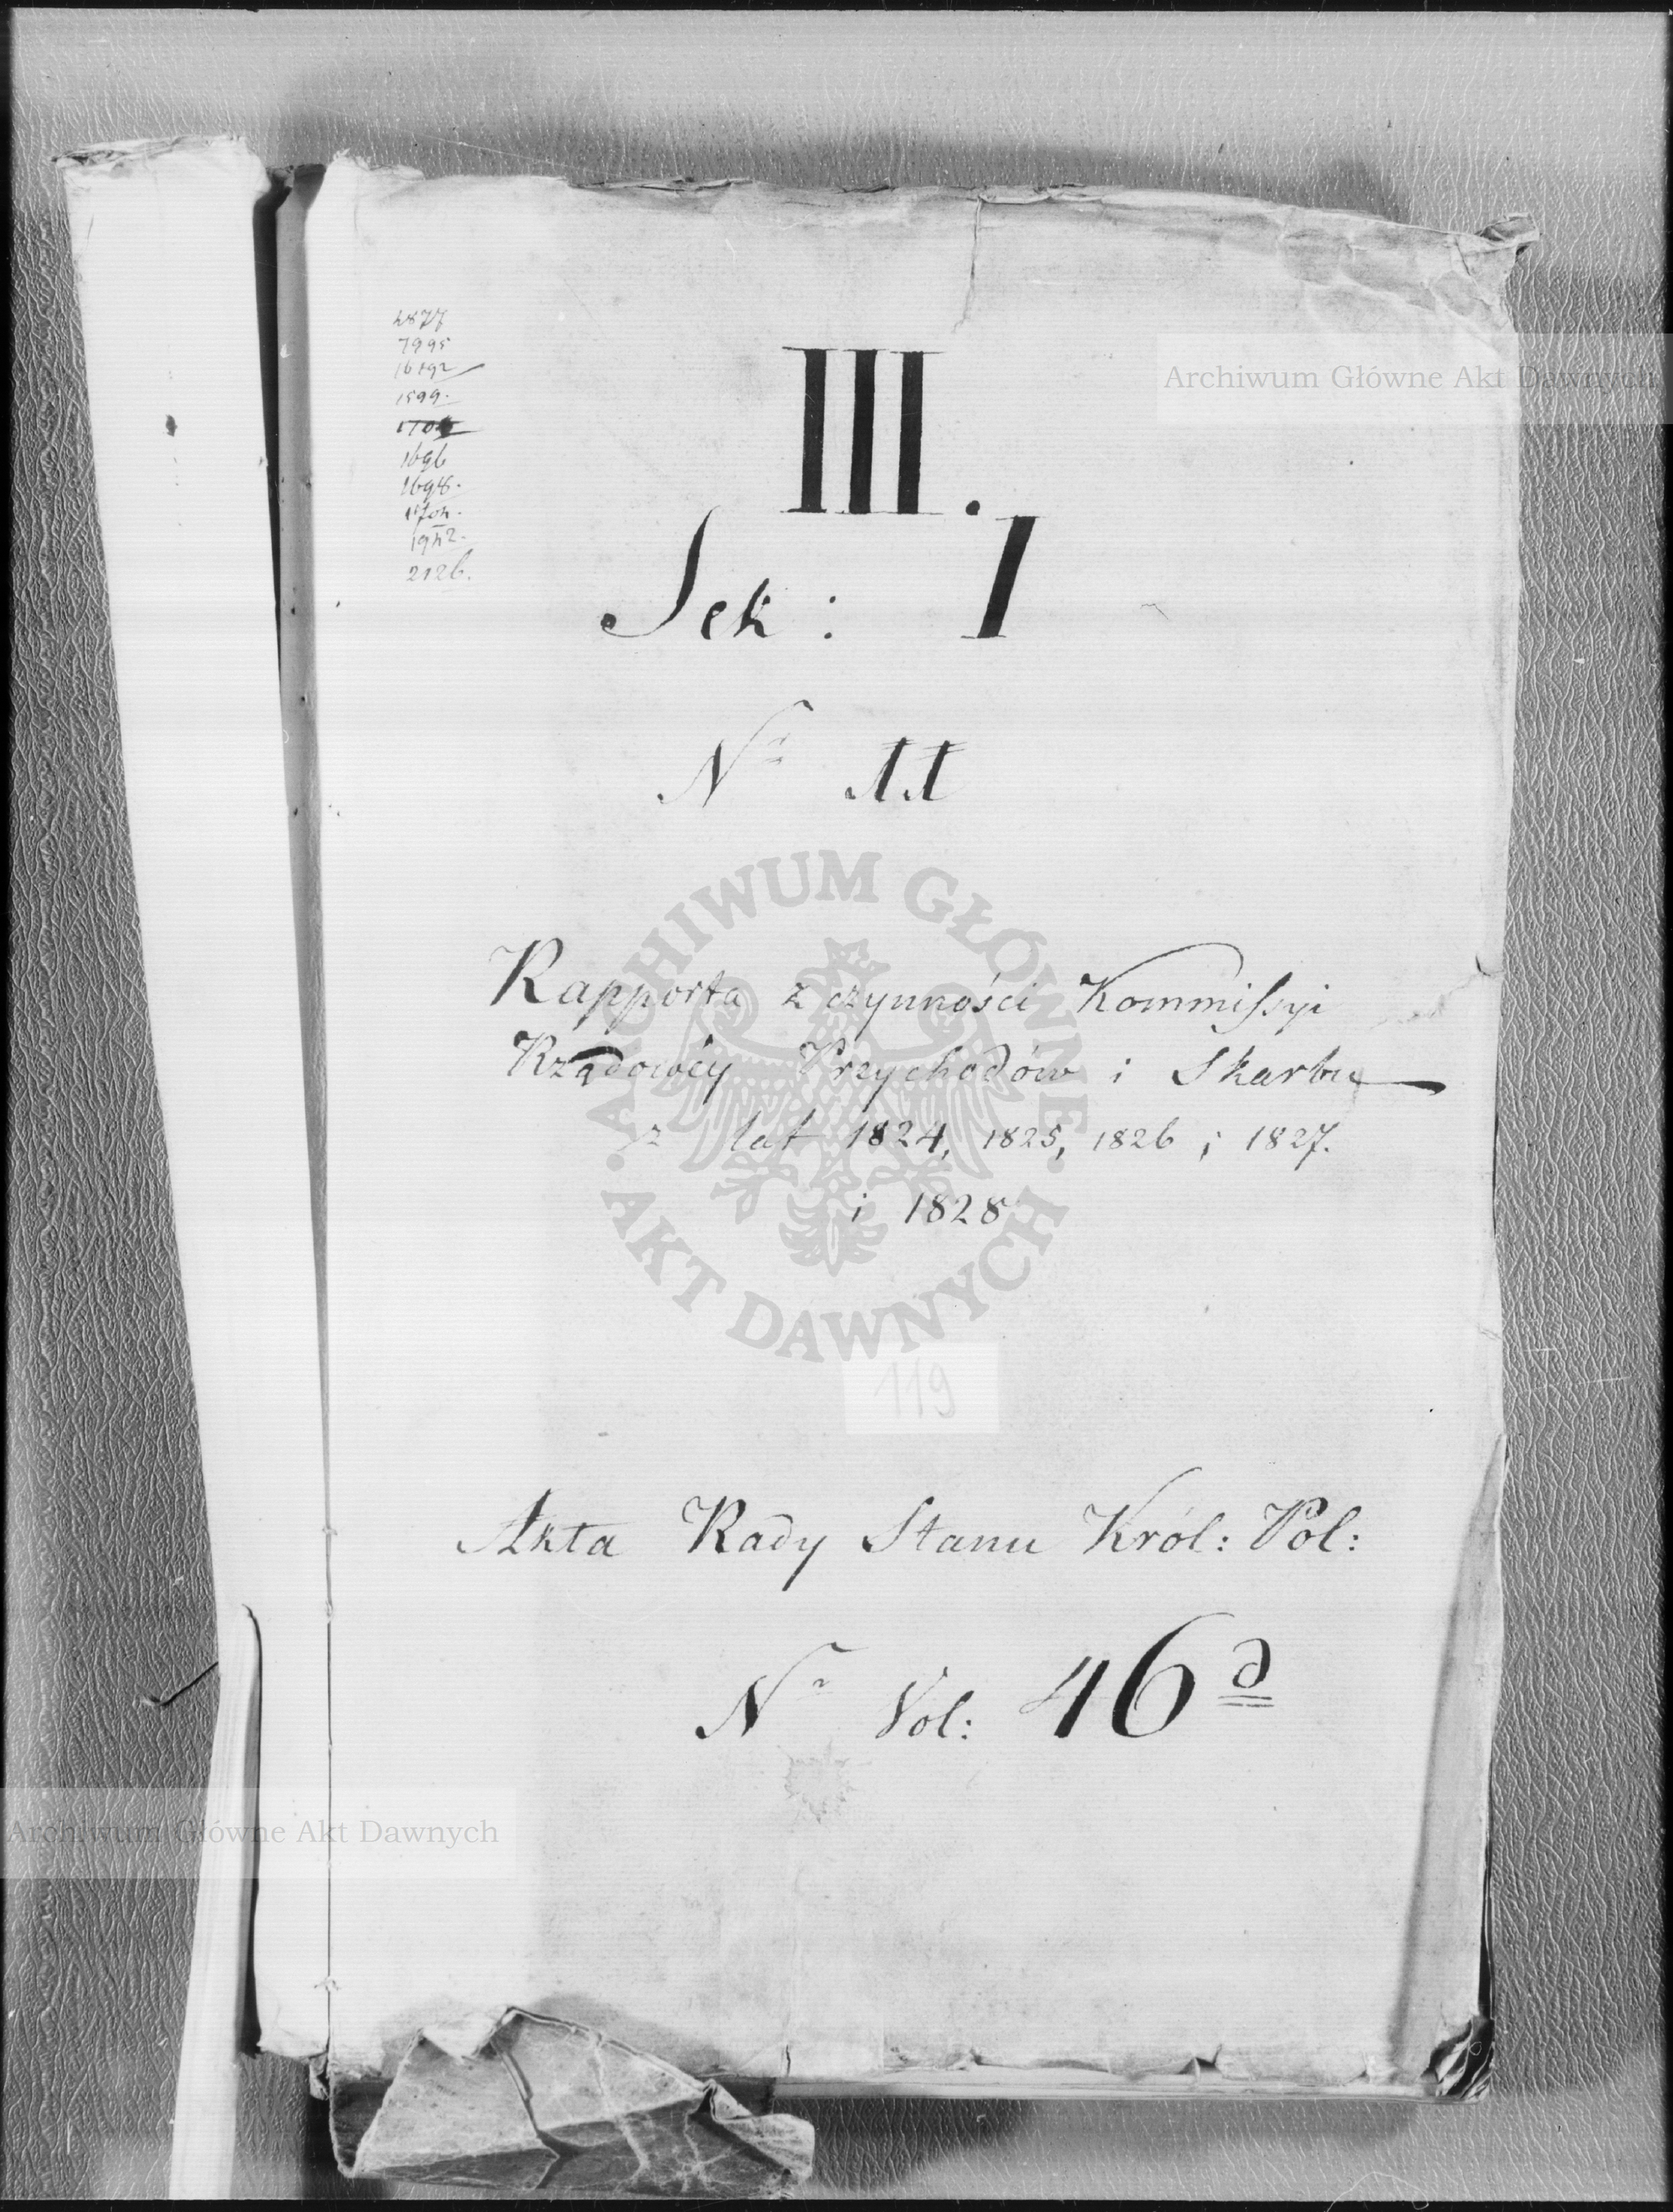 7995
16192
1599.
1696
1698.
1704.
2126.
III.
Sek: I
Nr 11
Rapporta z czynności Kommissyi
Rządowéy Przychodów i Skarbu
z lat 1824, 1825, 1826 i 1827.
i 1828
119
Akta Rady Stanu Król: Pol:
Nr Vol: 46 d
Archiwum Główne Akt Dawnych
ARCHIWUM GŁÓWNE
AKT DAWNYCH
Archiwum Główne Akt Dawnych